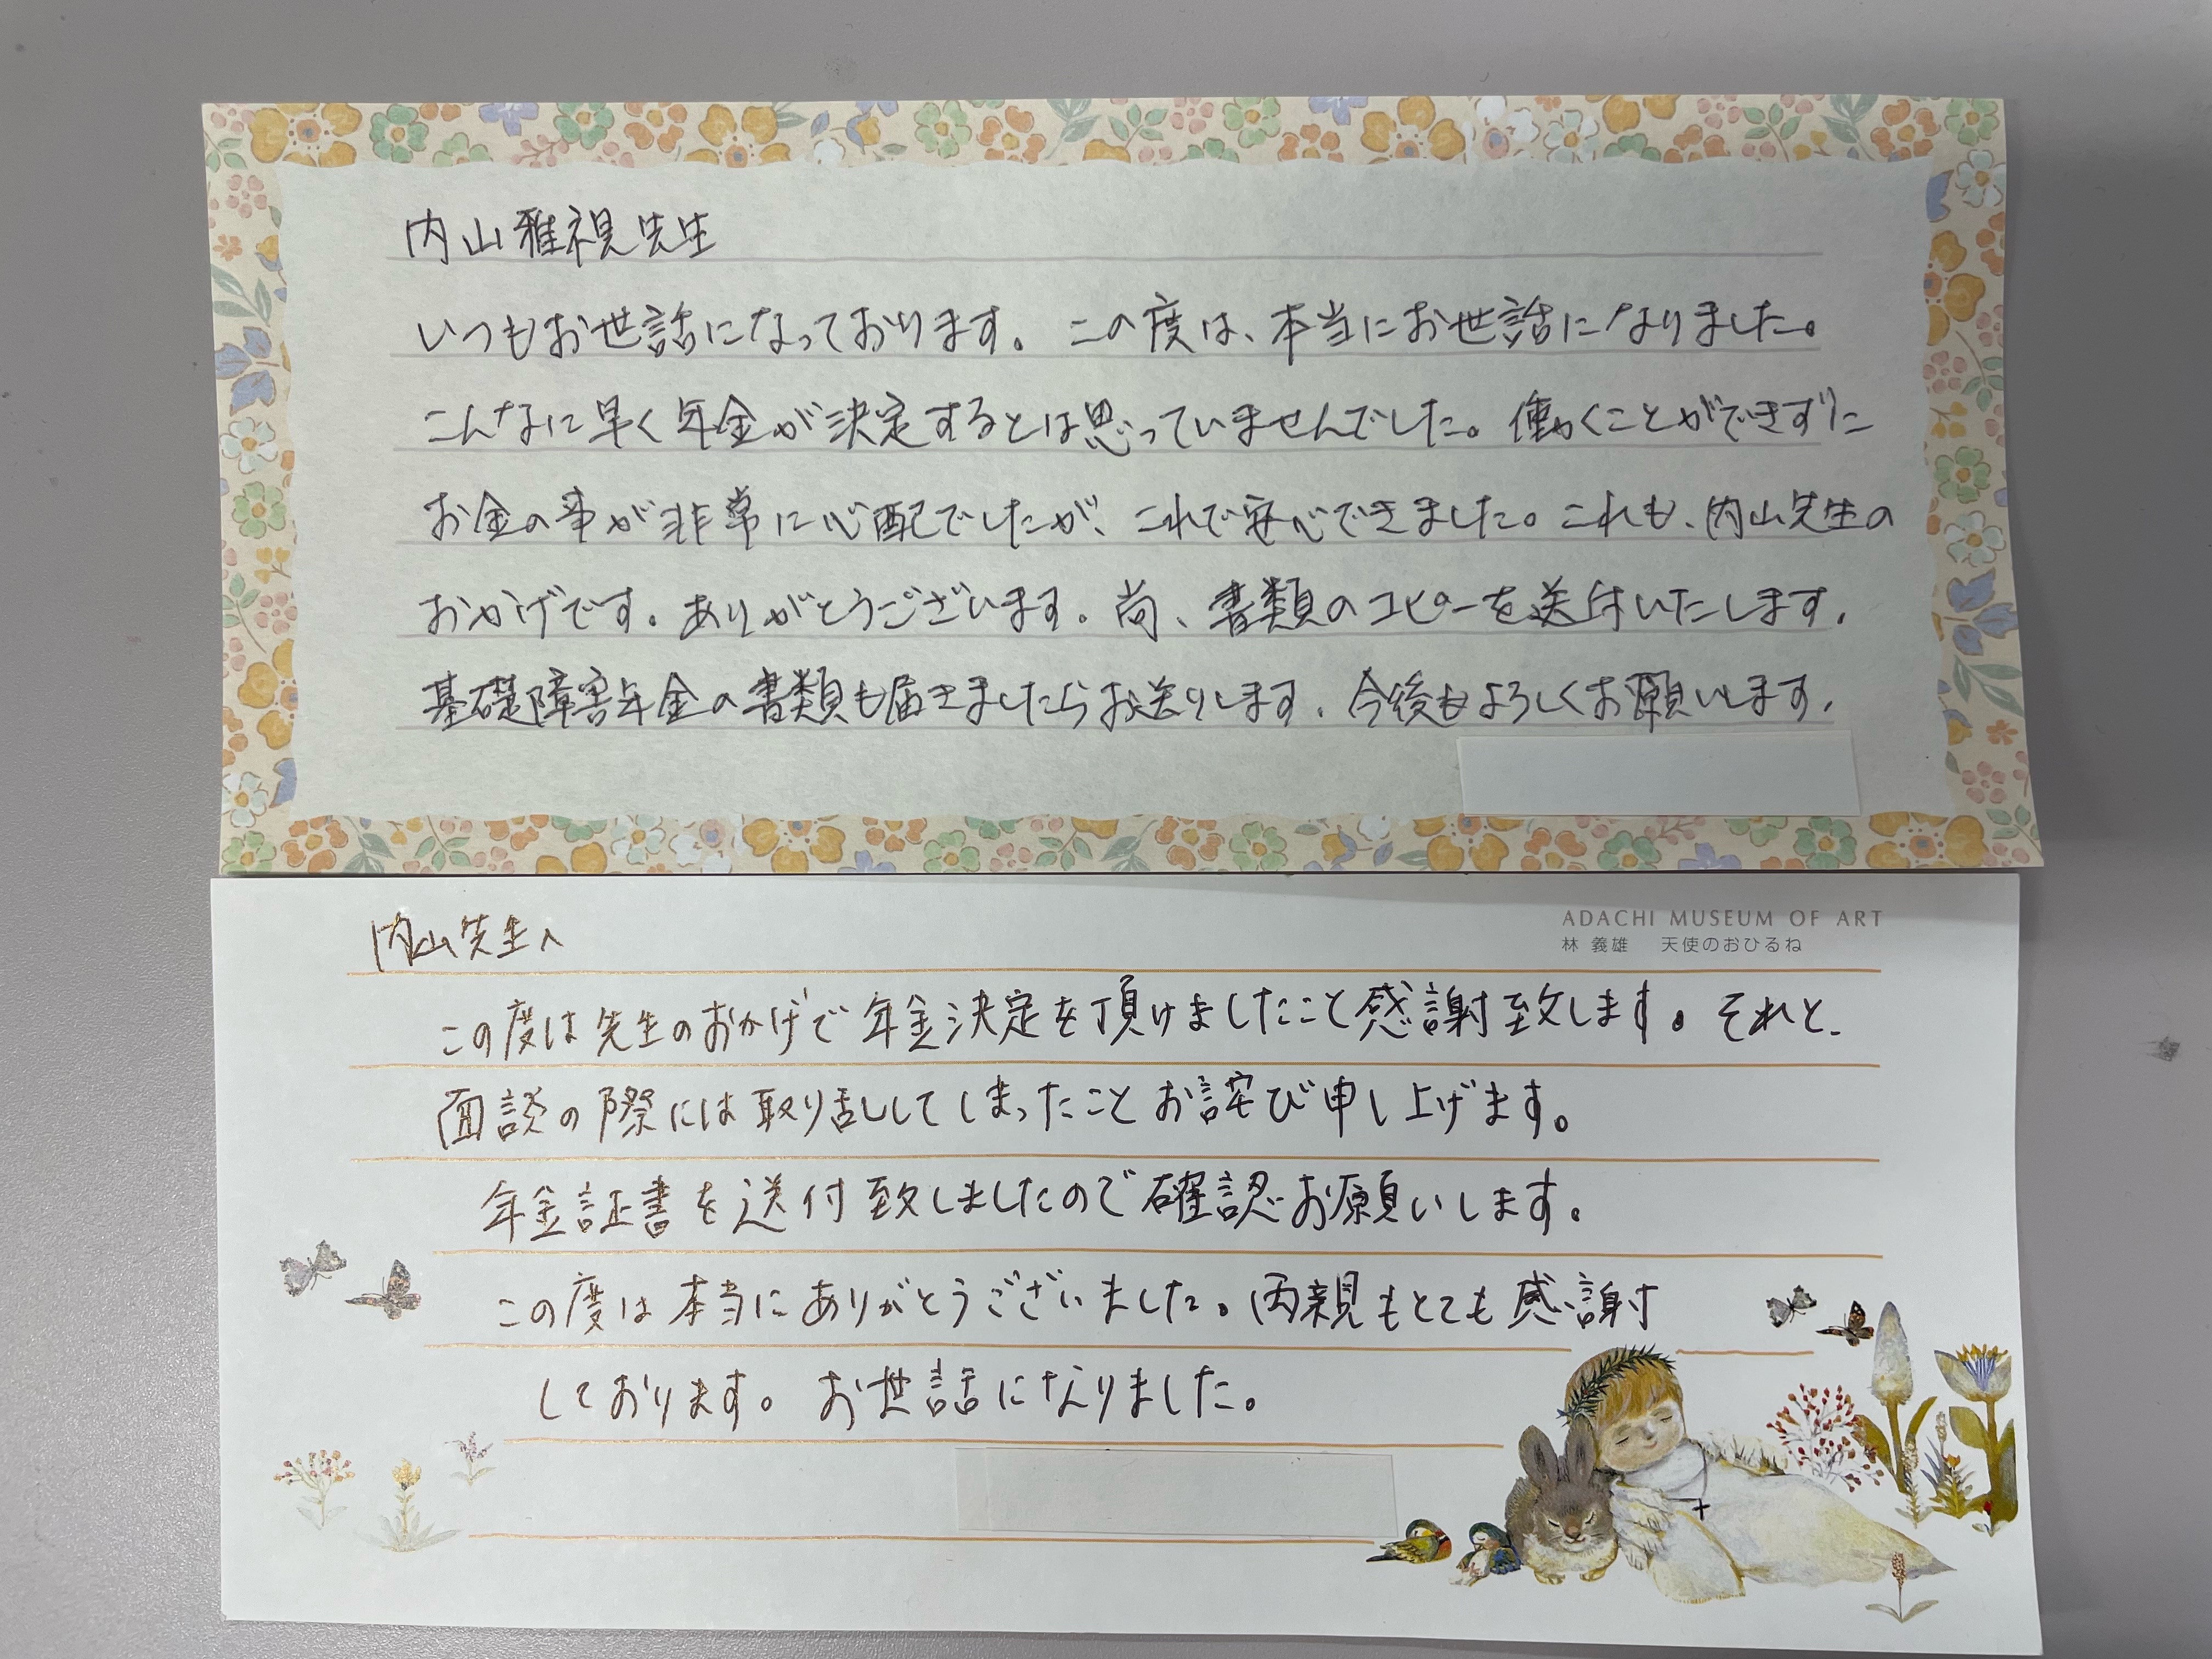 内山雅視先生
いつもお世話になっております。この度は、本当にお世話になりました。
こんなに早く年金が決定するとは思っていませんでした。働くことができずに
お金の事が非常に心配でしたが、これで安心できました。これも、内山先生の
おかげです。ありがとうございます。尚、書類のコピーを送付いたします。
基礎障害年金の書類も届きましたらお送りします。今後もよろしくお願いします。
内山先生へ
ADACHI MUSEUM OF ART
林 義雄 天使のおひるね
この度は先生のおかげで年金決定を頂けましたこと感謝致します。それと、
面談の際には取り乱ししてしまったことお詫び申し上げます。
年金証書を送付致しましたので確認お願いします。
この度は本当にありがとうございました。両親もとても感謝
しております。お世話になりました。